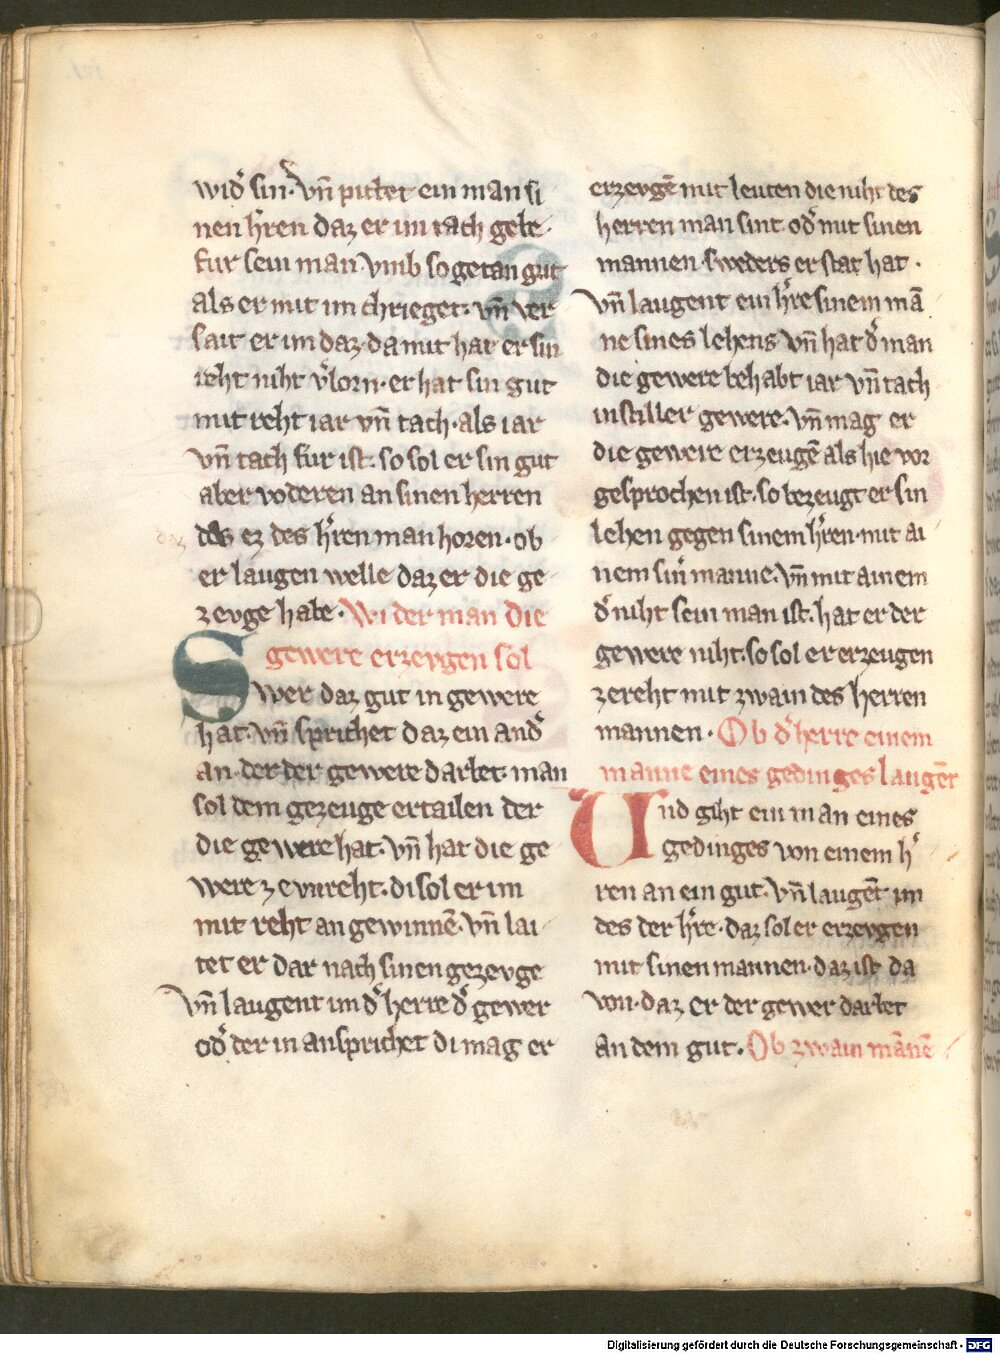 wid᷑ sin· vn̄ pittet ein man si
nen h᷑ren daz er im tach gebe·
fur sein man vmb so getan gut
als er mit im chrieget· vn̄ ver
sait er im daz· da mit hat er sin
reht niht v᷑lorn· er hat sin gut
mit reht iar vn̄ tach· als iar
vn̄ tach fur ist· so sol er sin gut
aber voderen an sinen herren
des ez des h᷑ren man horen· ob
er laugen welle daz er die ge
zevge habe· Wi der man die
gewere erzevgen sol
Swer daz gut in gewere
hat· vn̄ sprichet daz ein and᷑
an· der der gewere darbet· man
sol dem gezeuge ertailen der
die gewere hat· vn̄ hat die ge
were ze vnreht· di sol er im
mit reht an gewinnē· vn̄ lai
tet er dar nach sinen gezevge
vn̄ laugent im d᷑ herre d᷑ gewer
od᷑ der in ansprichet di mag er
erzevgē mit leuten die niht des
herren man sint· od᷑ mit sinen
mannen· sweders er stat hat·
vn̄ laugent ein h᷑re sinem mā
ne sines lehens vn̄ hat d᷑ man
die gewere behabt iar vn̄ tach
in stiller gewere· vn̄ mag er
die gewere erzeugē als hie vor
gesprochen ist· so bezeugt er sin
lehen gegen sinem h᷑ren· mit ai
nem sin᷑ manne· vn̄ mit ainem
d᷑ niht sein man ist· hat er der
gewere niht· so sol er erzeugen
ze reht mit zwain des herren
mannen· Ob d᷑ herre einem
manne eines gedinges laugēt
Und giht ein man eines
gedinges von einem h᷑
ren an ein gut· vn̄ laugēt im
des der h᷑re· daz sol er erzevgen
mit sinen mannen· daz ist da
von· daz er der gewer darbet
an dem gut· Ob zwain mānē
Digitalisierung gefördert durch die Deutsche Forschungsgemeinschaft - DFG